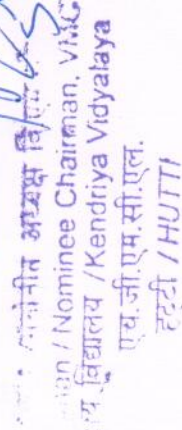 नामोनीत अध्यक्ष वि
/ Nominee Chairman, VMC
विद्यालय /Kendriya Vidyalaya
एच.जी.एम.सी.एल.
हट्टी /HUTTI